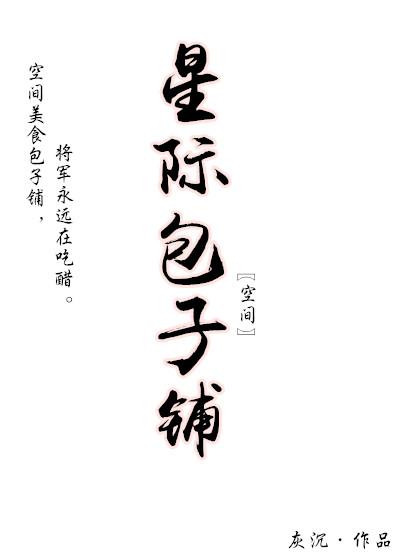 星际包子铺
[空间]
空间美食包子铺，
将军永远在吃醋。
灰沉·作品